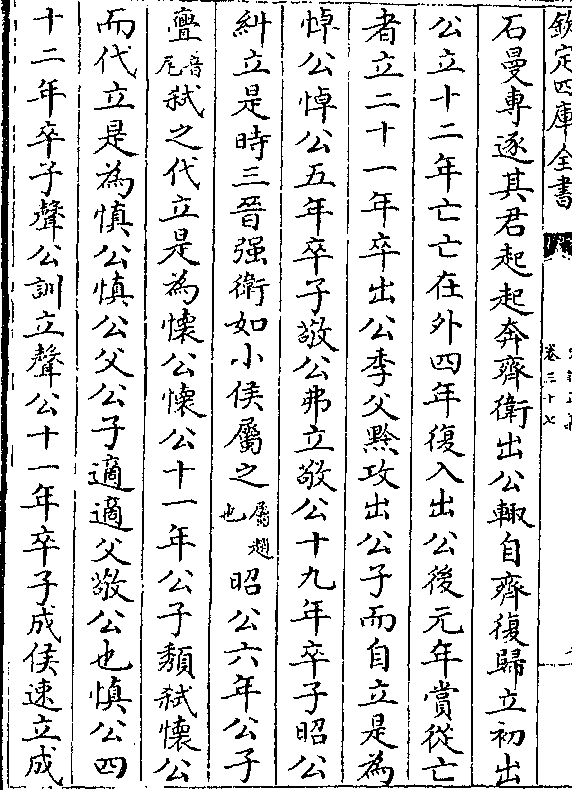 欽定四庫全書
卷三十七
石曼專逐其君起起奔齊衛出公輙自齊復歸立初出
公立十二年亡亡在外四年復入出公後元年賞從亡
者立二十一年卒出公季父黔攻出公子而自立是為
悼公悼公五年卒子敬公弗立敬公十九年卒子昭公
糾立是時三晉强衛如小侯屬之屬趙也昭公六年公子
亹音尾弑之代立是為懷公懷公十一年公子頽弑懷公
而代立是為慎公慎公父公子適適父敬公也慎公四
十二年卒子聲公訓立聲公十一年卒子成侯速立成